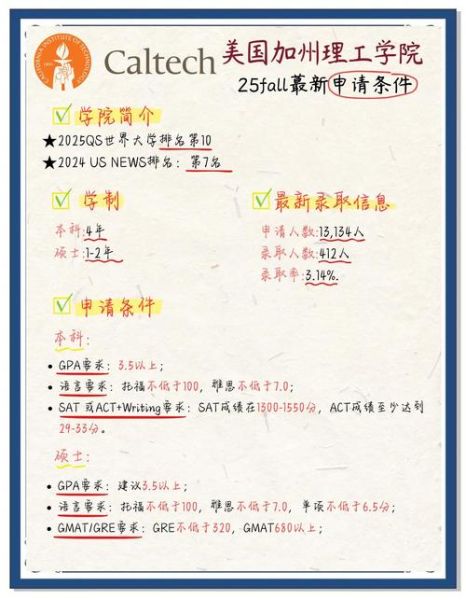 CALIFORNIA INSTITUTE OF TECHNOLOGY
Caltech 美国加州理工学院
25fall最新申请条件
学院简介
★2025QS世界大学排名第10
★2024 US NEWS排名：第7名
学制
本科:4年
硕士:1-2年
最新录取信息
申请人数:13,134人
录取人数:412人
录取率:3.14%.
申请条件
本科:
• GPA要求：3.5以上；
• 语言要求：托福不低于100，雅思不低于7.0；
• SAT 或ACT+Writing要求：SAT成绩在1300-1550分，ACT成绩至少达到
29-33分。
硕士:
• GPA要求：建议3.5以上；
• 语言要求：托福不低于100，雅思不低于7.0，单项不低于6.5分；
• GMAT/GRE要求：GRE不低于320，GMAT680以上；